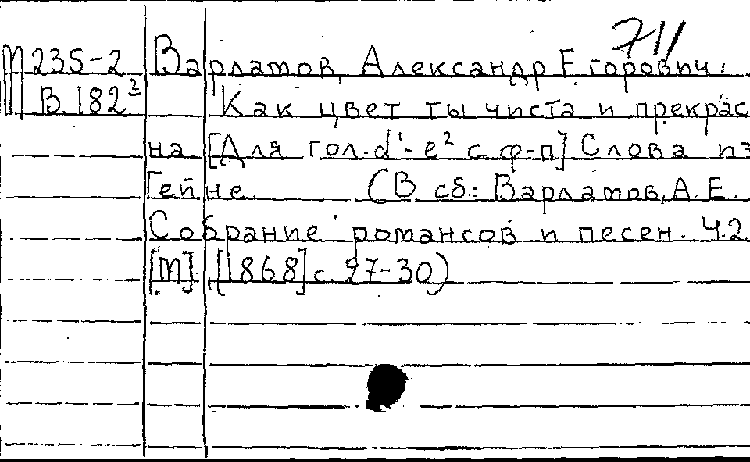 711
М 235-2 Варламов, Александр Егорович.
В 182² Как цвет ты чиста и прекрас
на [Для гол. d¹-e² с ф-п] Слова из
Гейне. (В сб: Варламов, А.Е.
Собрание романсов и песен. Ч.2.
[М] [1868] с. 27-30)